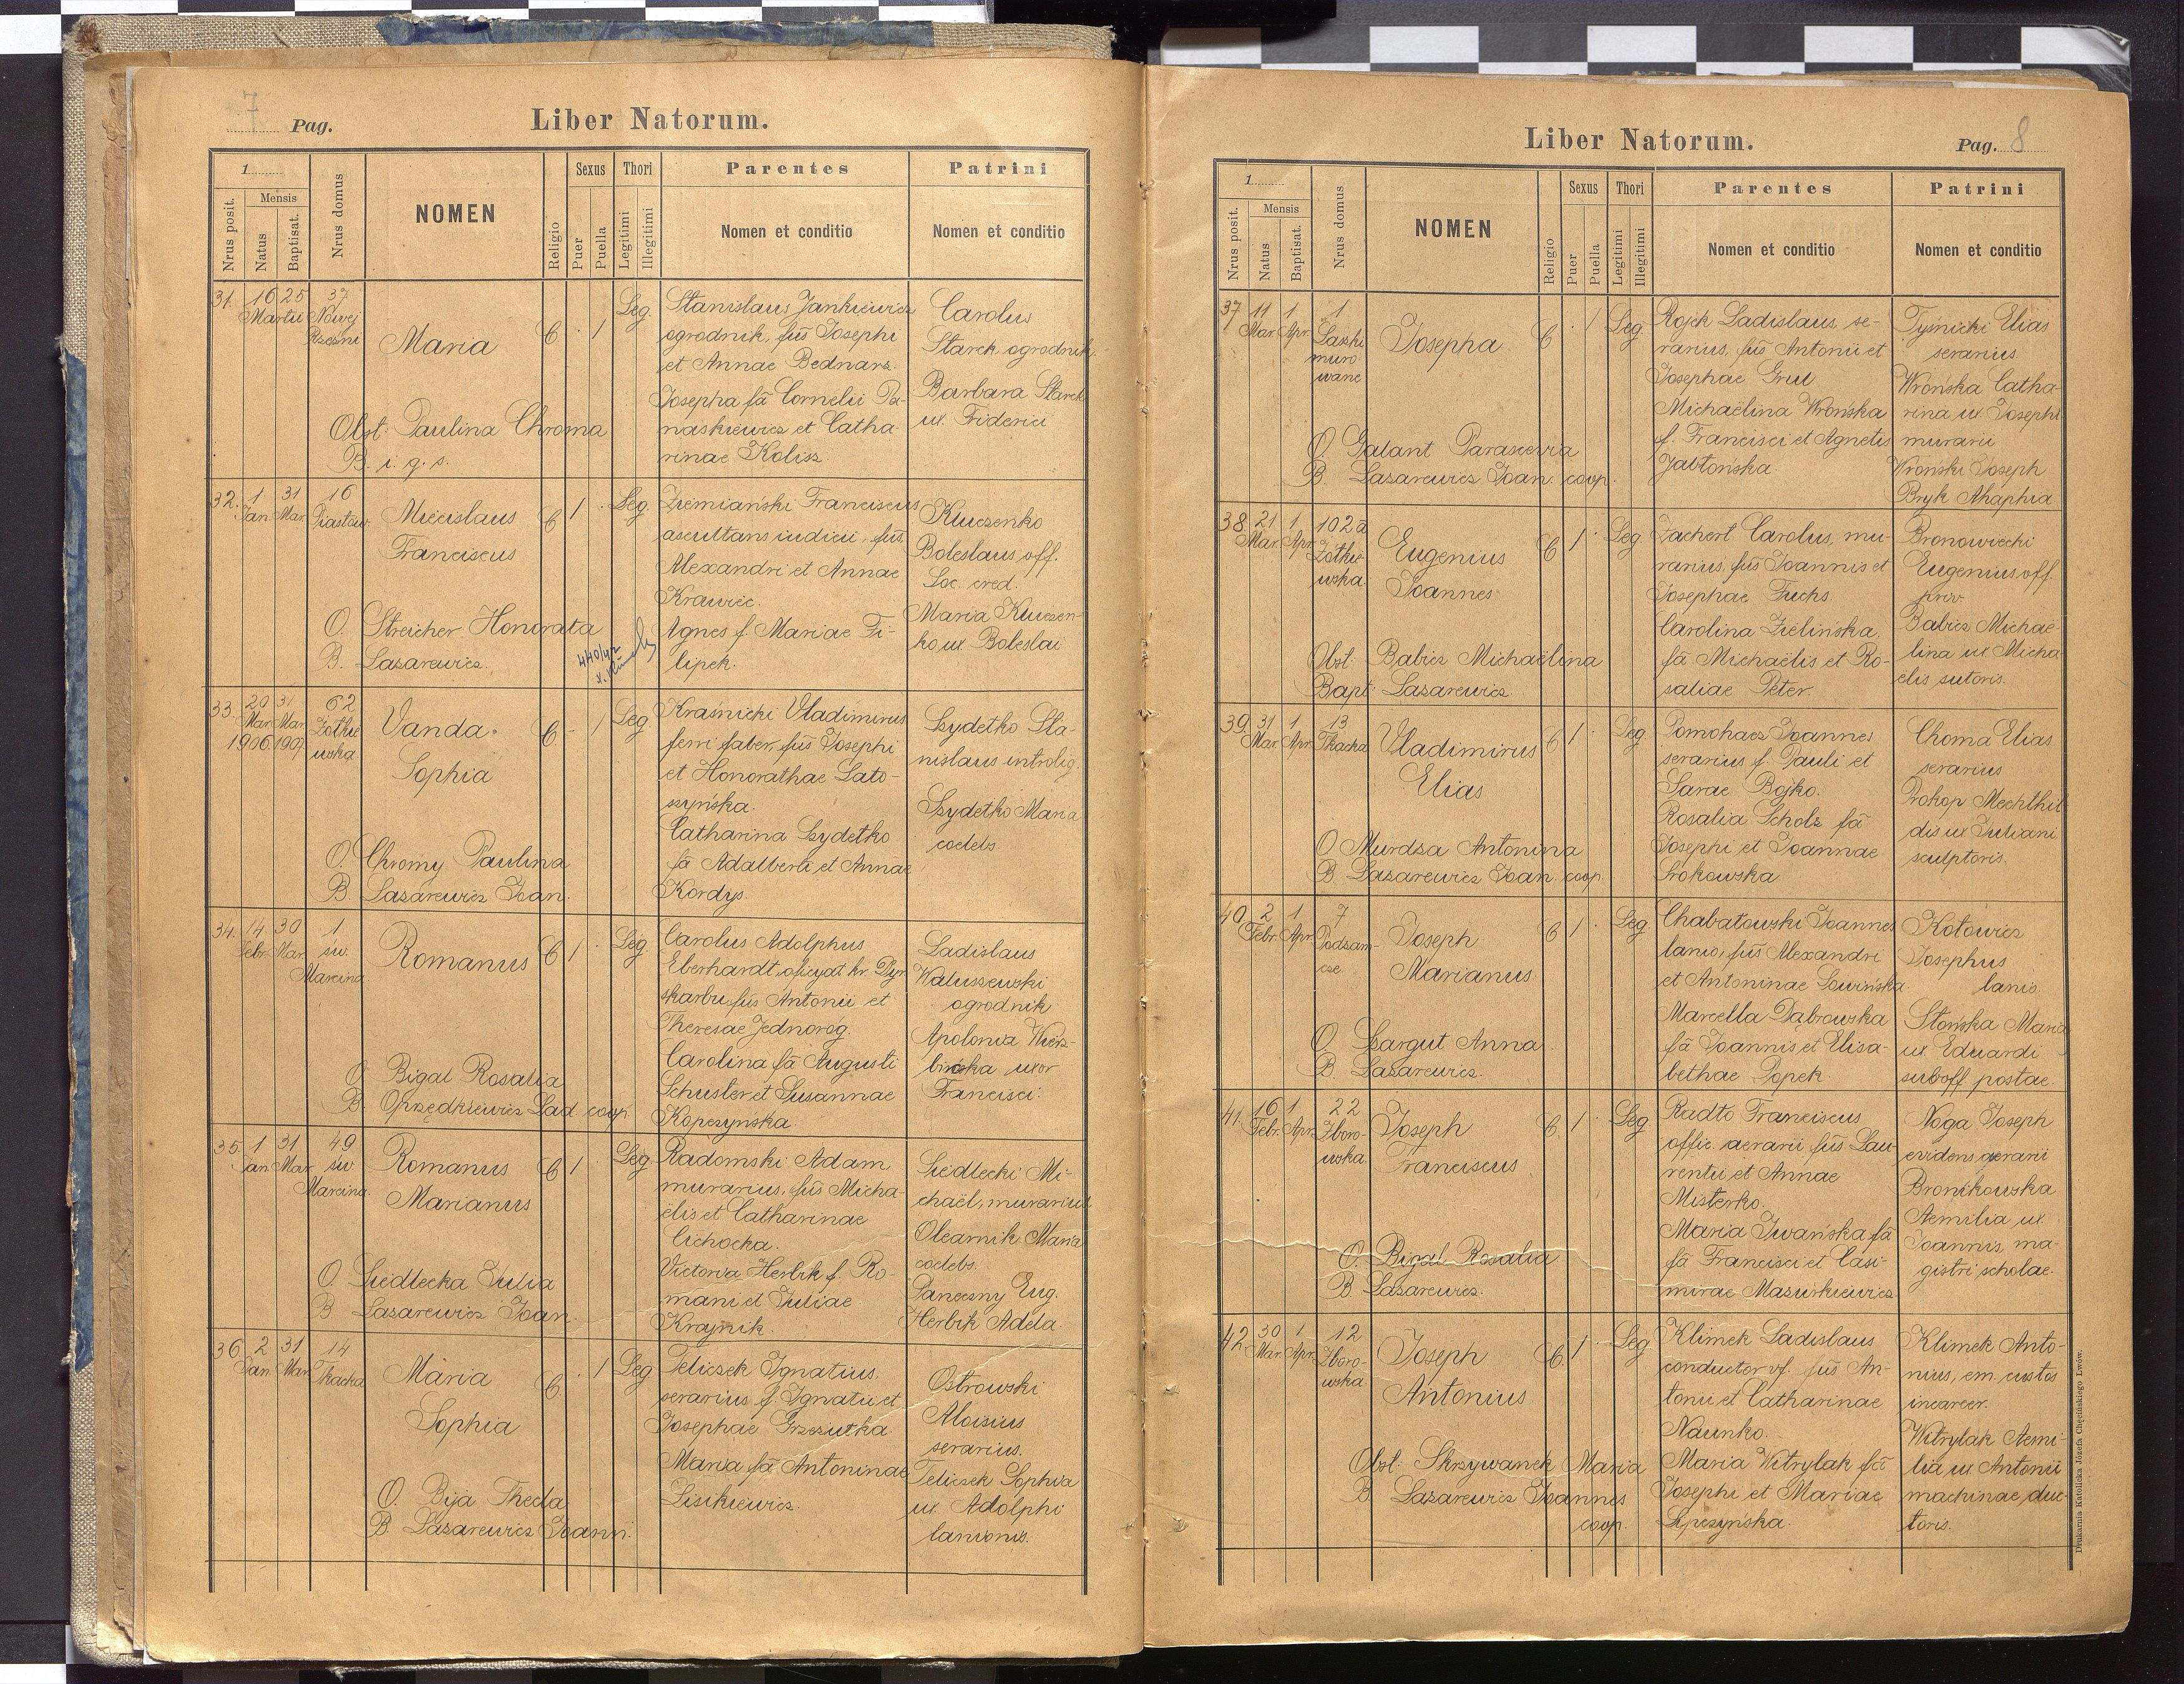 7 Pag.
Liber Natorum.
1
Nrus posit.
Mensis
Natus
Baptisat.
Nrus domus
NOMEN
Religio
Sexus
Puer
Puella
Thori
Legitimi
Illegitimi
Parentes
Nomen et conditio
Patrini
Nomen et conditio
31. 16 25 37
Martii Nowej
Rzeźni
Maria
C 1 Leg.
Obst: Paulina Chroma
B. i. g. s.
Stanislaus Jankiewicz
ogrodnik, fūs Josephi
et Annae Bednarz.
Josepha fā Cornelii Pa-
naskiewicz et Catha-
rinae Kolisz.
Carolus
Starek ogrodnik
Barbara Starek
ux. Friderici
32. 1 31 16
Jan. Mar. Piastów
Miecislaus
Franciscus
C 1 Leg.
O. Streicher Honorata
B. Lazarewicz.
440/42
Ziemiański Franciscus
ascultans iudicii, fūs
Alexandri et Annae
Krawiec.
Agnes f. Mariae Fi-
lipek.
Kluczenko
Boleslaus off.
Soc. cred.
Maria Kluczen-
ko ux. Boleslai
33. 20 31 62
Mar. Mar. Żółkie
1906. 1907. wska
Vanda
Sophia
C 1 Leg.
O. Chromy Paulina
B. Lazarewicz Joan.
Kraśnicki Vladimirus
ferri faber, fūs Josephi
et Honorathae Lato-
szyńska.
Catharina Szydełko
fā Adalberti et Annae
Kordys.
Szydełko Sta-
nislaus introlig.
Szydełko Maria
coelebs.
34. 14 30 1
Febr. Mar. św.
Marcina
Romanus
C 1 Leg.
O. Bigal Rosalia
B. Oprzędkiewicz Lad. coop.
Carolus Adolphus
Eberhardt, oficyał kr. Dyr.
skarbu, fūs Antonii et
Theresae Jednoróg.
Carolina fā Augusti
Schuster et Susannae
Kopczyńska.
Ladislaus
Waluszewski
ogrodnik
Apolonia Wierz-
bińska uxor
Francisci.
35. 1 31 49
Jan. Mar. św.
Marcina.
Romanus
Marianus
C 1 Leg.
O. Siedlecka Julia
B. Lazarewicz Joan.
Radomski Adam
murarius, fūs Micha-
ëlis et Catharinae
Cichocka.
Victoria Herbik f. Ro-
mani et Juliae
Krajnik.
Siedlecki Mi-
chaël, murarius
Olearnik Maria
coelebs.
Paneczny Eug.
Herbik Adela.
36. 2 31 14
Jan. Mar. Tkacka
Maria
Sophia
C. 1 Leg.
O. Bija Thecla
B. Lazarewicz Joann.
Feliczek Ignatius,
serarius f. Ignatii et
Josephae Grzesiutka
Maria fā Antoninae
Lisikiewicz.
Ostrowski
Aloisius
serarius.
Feliczek Sophia
ux. Adolphi
lanionis.
Liber Natorum.
Pag. 8
1
Nrus posit.
Mensis
Natus
Baptisat.
Nrus domus
NOMEN
Religio
Sexus
Puer
Puella
Thori
Legitimi
Illegitimi
Parentes
Nomen et conditio
Patrini
Nomen et conditio
37 11 1 1
Mar. Apr. Laszki
muro
wane
Josepha
C 1 Leg.
O. Galant Parascevia
B. Lazarewicz Joan. coop.
Rojek Ladislaus se-
rarius, fūs Antonii et
Josephae Grul
Michaëlina Wrońska
f. Francisci et Agnetis
Jabłońska.
Tyśnicki Elias
serarius.
Wrońska Catha-
rina ux. Josephi
murarii
Wroński Joseph
Bryk Ahaphia
38. 21 1 102a
Mar. Apr. Żółkie
wska.
Eugenius
Joannes
C 1 Leg.
Obst: Babicz Michaëlina
Bapt: Lazarewicz
Zachert Carolus, mu-
rarius, fūs Joannis et
Josephae Fuchs.
Carolina Zielińska,
fā Michaëlis et Ro-
saliae Peter.
Bronowiecki
Eugenius off.
priv.
Babicz Michaë-
lina ux. Micha
ëlis sutoris.
39. 31 1 13
Mar. Apr. Tkacka
Vladimirus
Elias
C 1 Leg.
O. Murdza Antonina
B. Lazarewicz Joan. coop.
Pomohacz Joannes
serarius f. Pauli et
Sarae Bojko.
Rosalia Scholz fā
Josephi et Joannae
Srokowska
Choma Elias
serarius
Prokop Mechthil
dis ux. Juliani
sculptoris.
40. 2 1 7
Febr. Apr. Podzam-
cze.
Joseph
Marianus.
C 1 Leg.
O. Szargut Anna
B. Lazarewicz.
Chabatowski Joannes
lanio, fūs Alexandri
et Antoninae Sowińska
Marcella Dąbrowska
fā Joannis et Elisa-
bethae Popek.
Kotowicz
Josephus
lanio.
Słońska Maria
ux. Eduardi
suboff postae.
41. 16 1 22
Febr. Apr. Zboro-
wska.
Joseph
Franciscus
C. 1 Leg.
O. Bigal Rosalia
B. Lazarewicz.
Radło Franciscus
offic. aerarii fūs Lau-
rentii et Annae
Misterko.
Maria Iwańska fā
fā Francisci et Casi-
mirae Mazurkiewicz
Noga Joseph
evidens aerarii
Bronikowska
Aemilia ux.
Joannis, ma-
gistri scholae.
42. 30 1 12
Mar. Apr. Zboro-
wska
Joseph
Antonius
C. 1 Leg
Obst: Skrzywanek Maria
B. Lazarewicz Joannes
coop.
Klimek Ladislaus
conductor vf. fūs An-
tonii et Catharinae
Naunko.
Maria Witrylak fā
Josephi et Mariae
Lipczyńska.
Klimek Anto-
nius, em. custos
incarcer.
Witrylak Aemi-
lia ux. Antonii
machinae duc-
toris.
Drukarnia Katolicka Józefa Chęcińskiego Lwów.